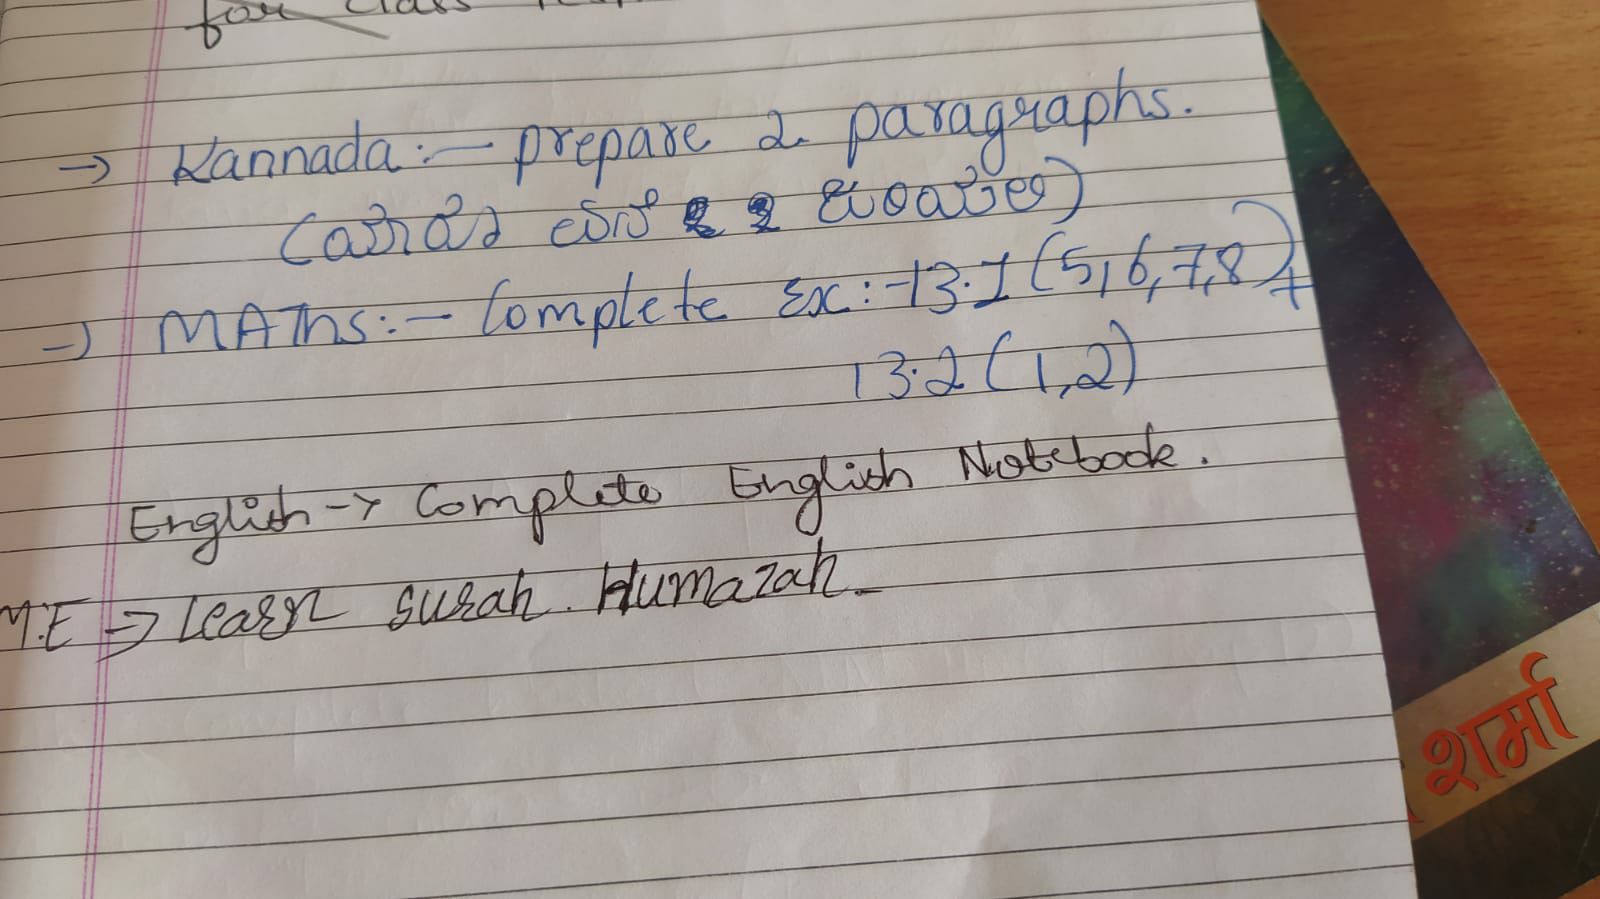 for class
→ Kannada:— prepare 2 paragraphs.
→ MAThs:— Complete Ex:-13.1 (5,6,7,8)+
13.2 (1,2)
English → Complete English Notebook.
M.E ⇒ Learn surah Humazah
शर्मा